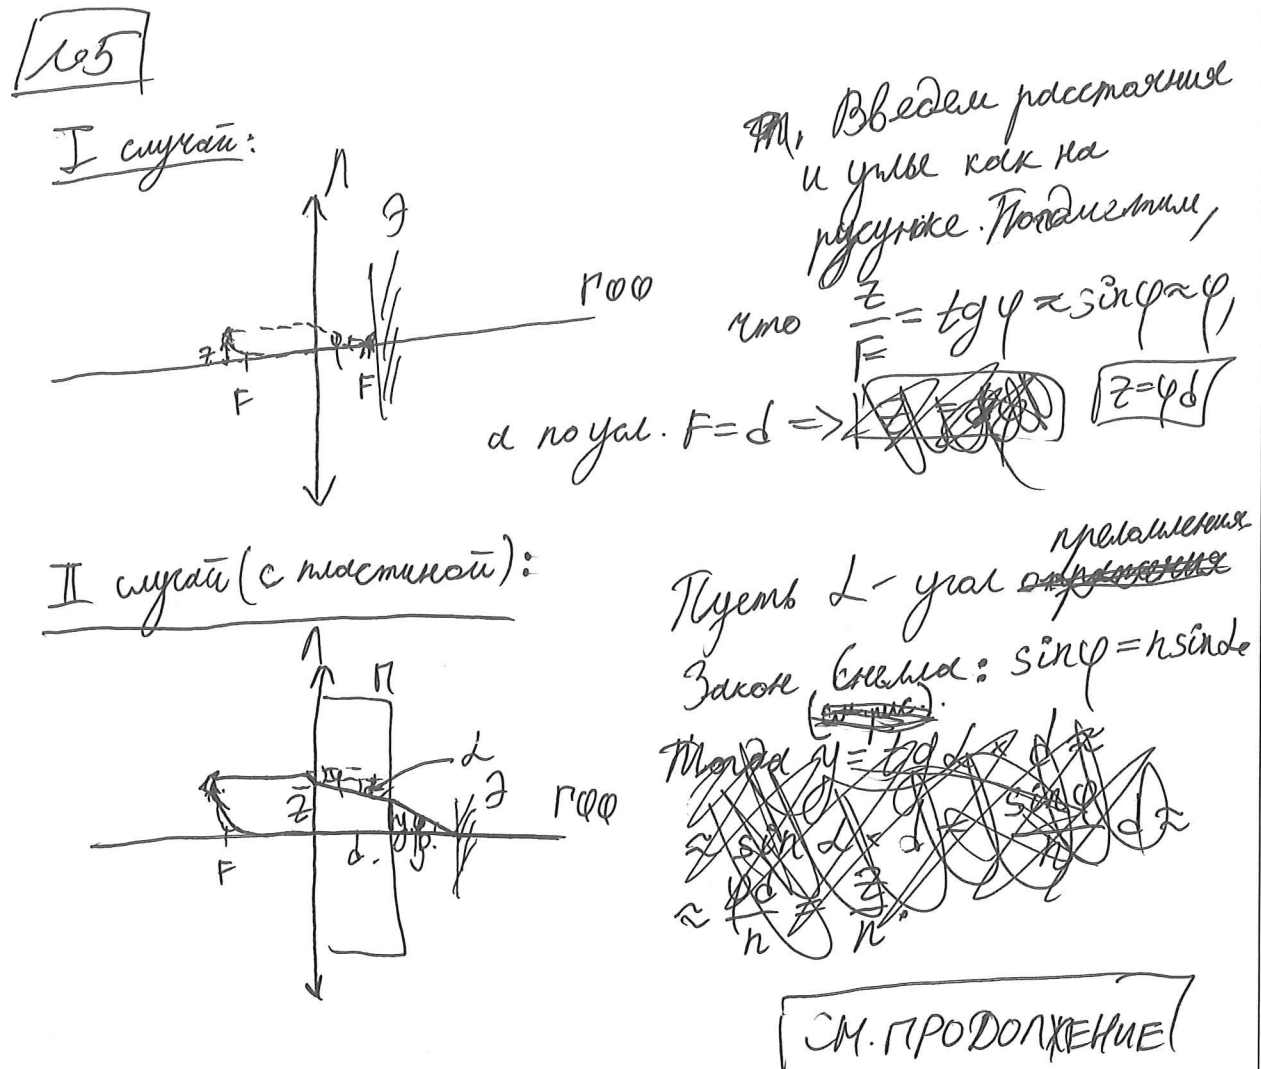 №5
I случай:
Л
Э
ГОО
z
φ
F
F
Введем расстояния
и углы как на
русунке. Подметим,
что z/F = tgφ ≈ sinφ ≈ φ,
а по усл. F = d => z = φd
II случай (с пластиной):
Л
П
α
Э
ГОО
z
φ
d
y
φ
F
Пусть α - угол преломления
Закон Снелла: sinφ = n sinα
СМ. ПРОДОЛЖЕНИЕ